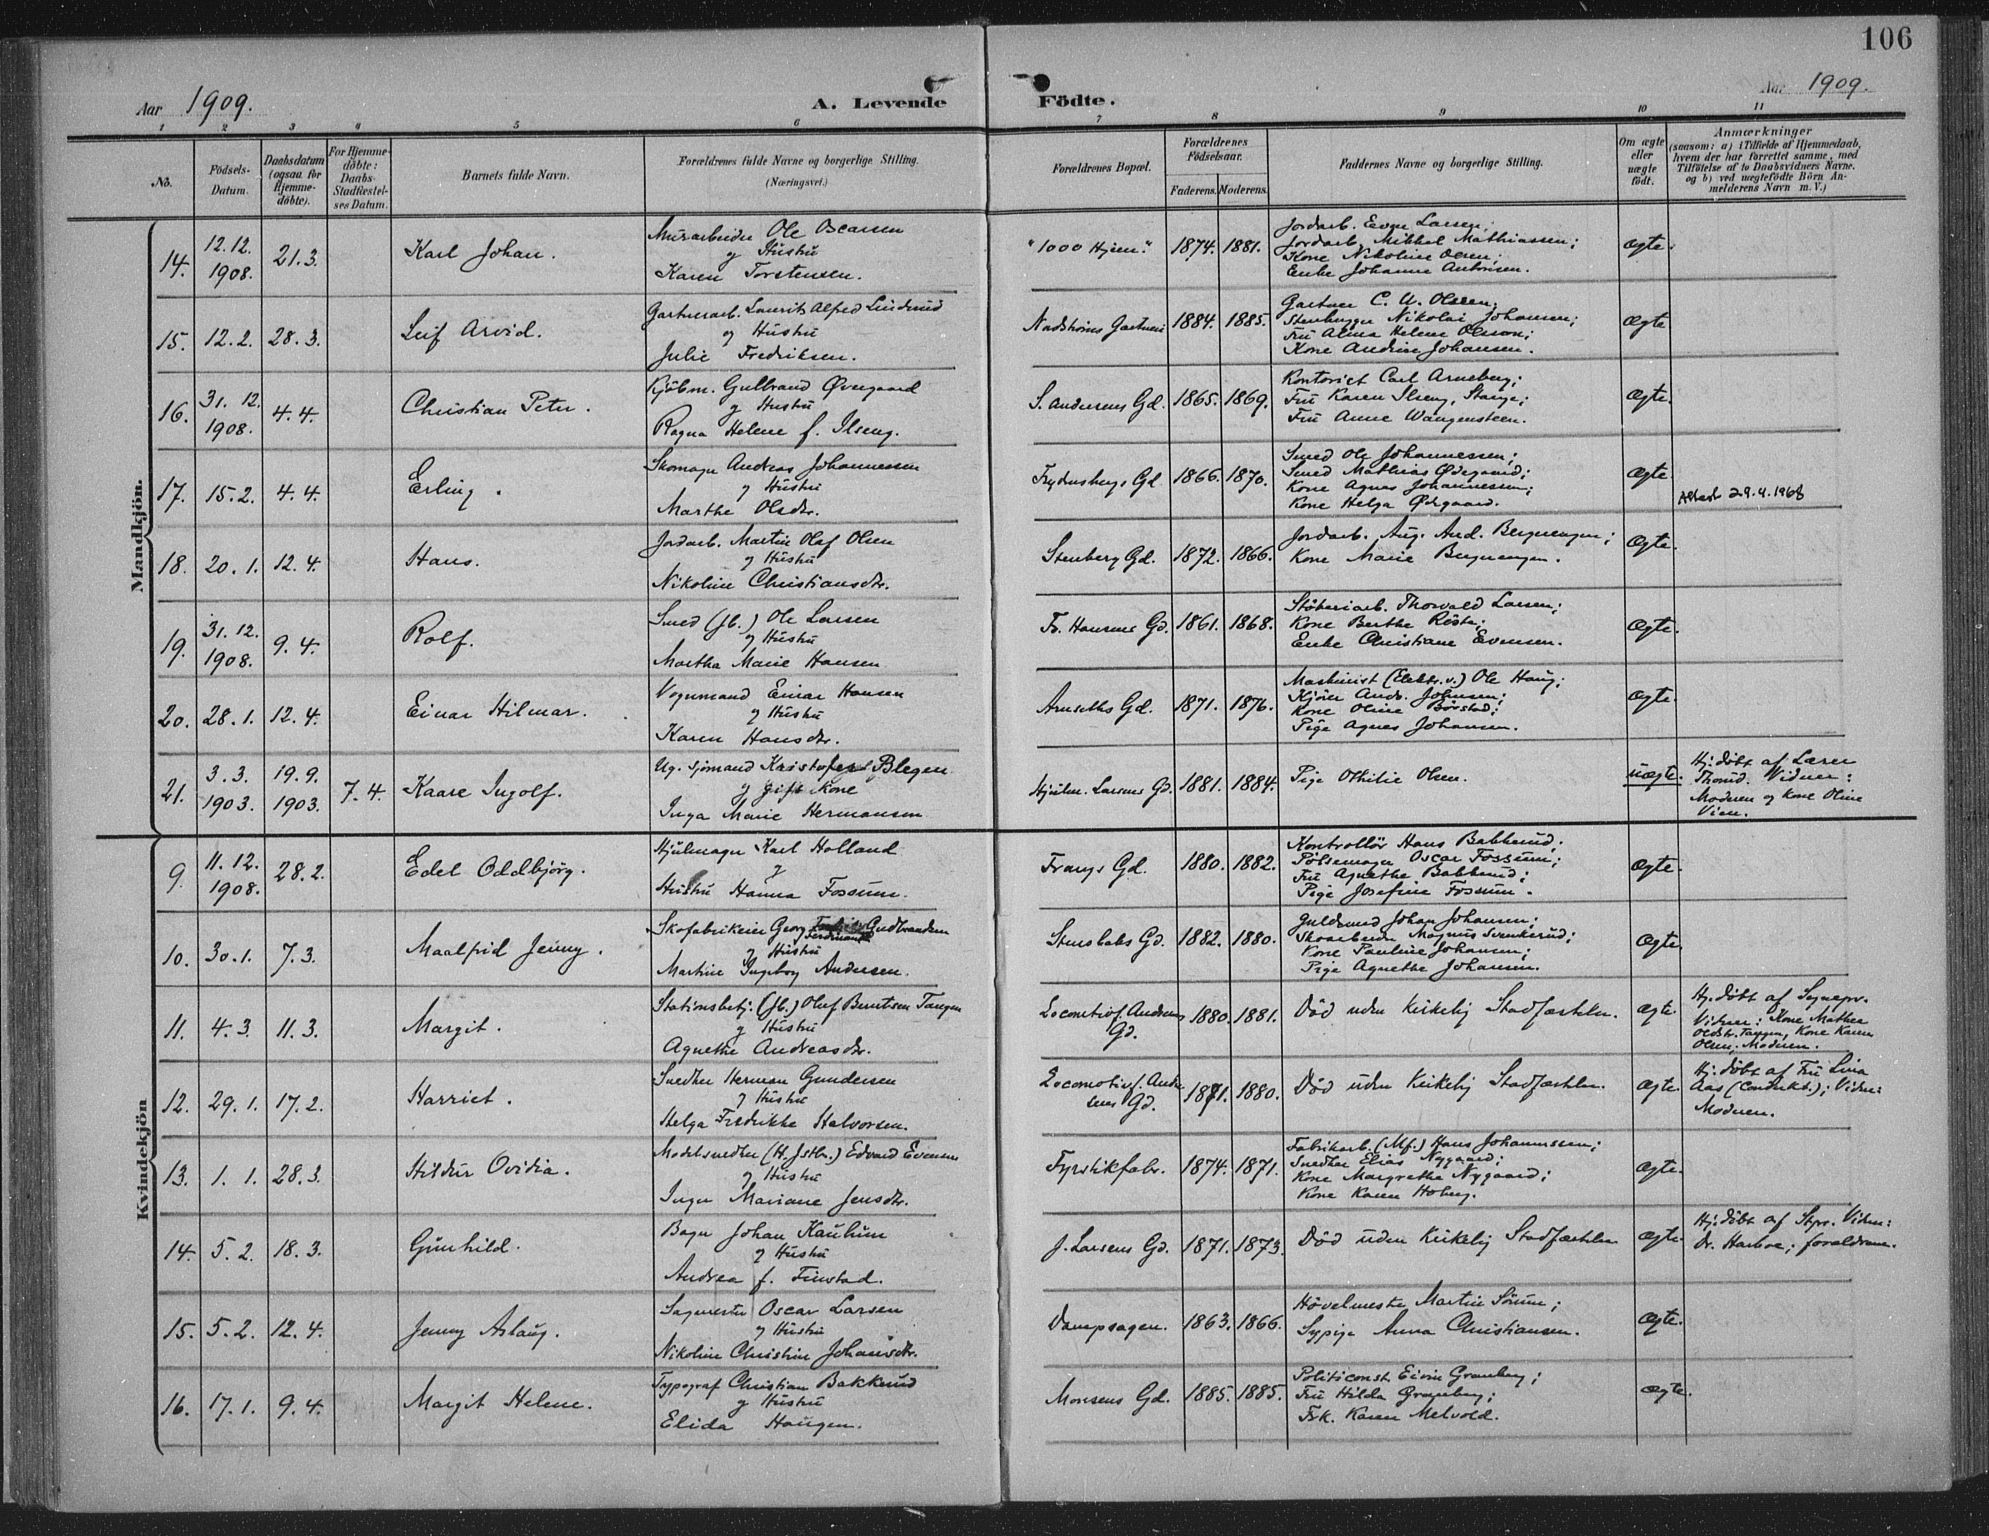 106
Aar 1909.
A. Levende Födte.
Aar 1909.
1 2 3 4 5 6 7 8 9 10 11
No.
Födsels-
Datum.
Daabsdatum
(ogsaa for
Hjemme-
döbte).
For Hjemme-
döbte:
Daabs-
Stadfæstel-
ses Datum.
Barnets fulde Navn.
Forældrenes fulde Navne og borgerlige Stilling.
(Næringsvei.)
Forældrenes Bopæl.
Forældrenes
Födselsaar.
Faderens. Moderens.
Faddernes Navne og borgerlige Stilling.
Om ægte
eller
uægte
födt.
Anmærkninger
(saasom: a) i Tilfælde af Hjemmedaab,
hvem der har forrettet samme, med
Tilföielse af to Daabsvidners Navne.
og b) ved uægtefödte Börn An-
melderens Navn m. V.)
Mandkjön.
14. 12.12. 1908. 21.3. Karl Johan.
Murarbeider Ole Oscarsen
og Hustru
Karen Torstensen.
"1000 Hjem." 1874. 1881.
Jordarb. Larsen;
Jordarb. Mikkel Mathiassen;
Kone Nikoline Olsen;
Enke Johanne Antonsen.
ægte.
15. 12.2. 28.3. Leif Arvid.
Gartnerarb. Laurits Alfred Lindrud
og Hustru
Julie Fredriksen.
Gartneri 1884. 1885.
Gartner C. A. Olsen;
Stenhugger Nikolai Johansen;
Fru Alma Helene Olsson;
Kone Andrine Johansen.
ægte
16. 31.12. 1908. 4.4. Christian Peter.
Kjöbm. Gulbrand Øvergaard
og Hustru
Ragna Helene f. Ilseng.
S. Andersens Gd. 1865. 1869.
Kontorist Carl Arneberg;
Fru Karen Ilseng, Stange;
Fru Anne Wangensteen.
ægte.
17. 15.2. 4.4. Erling.
Skomager Andreas Johannessen
og Hustru
Marthe Olsdtr.
Frydensbergs Gd 1866. 1870.
Smed Ole Johannessen;
Smed Mathias Ødegaard;
Kone Agnes Johannessen;
Kone Helga Ødegaard.
ægte.
Attest 29.4.1968
18. 20.1. 12.4. Hans.
Jordarb. Martin Olaf Olsen
og Hustru
Nikoline Christiansdtr.
Stenberg Gd. 1872. 1866.
Jordarb. Aug. And. Bergnengen;
Kone Marie Bergnengen.
ægte.
19. 31.12. 1908. 9.4. Rolf.
Smed (Jb.) Ole Larsen
og Hustru
Martha Marie Hansen
Fr. Hansens Gd. 1861. 1868.
Støberiarb. Thorvald Larsen;
Kone Berthe Røste;
Enke Christiane Evensen.
ægte.
20. 28.1. 12.4. Einar Hilmar.
Vognmand Einar Hansen
og Hustru
Karen Hansdtr.
Arnseths Gd. 1871. 1876.
Maskinist (Elektr.v.) Ole Haug;
Kjører Andr. Johnsen;
Kone Oline Børstad;
Pige Agnes Johansen.
ægte.
21. 3.3. 1903. 19.9. 1903. 7.4. Kaare Ingolf.
Ug. Sjømand Kristofer Blegen
og gift Kone
Inga Marie Hermansen
Hjulm. Larsens Gd. 1881. 1884.
Pige Othilie Olsen.
uægte.
Hj. døbt af Lærer
Thorud. Vidner:
Moderen og Kone Oline
Vien.
Kvindekjön
9. 11.12. 1908. 28.2. Edel Oddbjørg.
Hjulmager Karl Holland
og
Hustru Hanna Fossum.
Frangs Gd. 1880. 1882.
Kontrollör Hans Bakkerud;
Pølsemager Oscar Fossum;
Fru Agnethe Bakkerud;
Pige Josefine Fossum.
ægte.
10. 30.1. 7.3. Maalfrid Jenny.
Skofabrikeier Georg Ferdinand Gudbrandsen
og Hustru
Martine Ingeborg Andersen.
Stensbaks Gd. 1882. 1880.
Guldsmed Johan Johansen;
Skoarbeider Magnus Svenkerud;
Kone Pauline Johansen;
Pige Agnethe Johansen.
ægte.
11. 4.3 11.3. Margit.
Stationsbetj. (Jb.) Oluf Berntsen Tangen
og Hustru
Agnethe Andreasdtr.
Locomotivf. Andersens
Gd. 1880. 1881.
Død uden kirkelig Stadfæstelse.
ægte.
Hj. døbt af Sognepr.
Vidner: Kone Mathea
Oldstr. Tangen, Kone Karen
Olsen; Moderen.
12. 29.1. 17.2. Harriet.
Snedker Herman Gundersen
og Hustru
Helga Fredrikke Halvorsen.
Locomotivf. Ander
sens Gd. 1881. 1880.
Død uden Kirkelig Stadfæstelse.
ægte.
Hj. døbt af Fru Lina
Aas (Condukt.); Vidne:
Moderen.
13. 1.1. 28.3. Hildur Ovidia.
Modelsnedker (H. Jstb.) Edvard Evensen
og Hustru
Inger Mariane Jensdtr.
Fyrstikfabr. 1874. 1871.
Fabrikarb. (Mf.) Hans Johannessen;
Snedker Elias Nygaard;
Kone Margrethe Nygaard;
Kone Karen Hoberg.
ægte.
14. 5.2. 18.3. Gunhild.
Bager Johan Kaulum
og Hustru
Andrea f. Finstad.
J. Larsens Gd. 1871. 1873.
Død uden Kirkelig Stadfæstelse
ægte.
Hj. døbt af Stpr. Vidner:
Dr. Harboe; forældrene.
15. 5.2. 12.4. Jenny Aslaug.
Sagmester Oscar Larsen
og Hustru
Nikoline Christine Johansdtr.
Dampsagen. 1863. 1866.
Høvelmester Martin Sörum;
Sypige Anna Christiansen.
ægte.
16. 17.1. 9.4. Margit Helene.
Typograf Christian Bakkerud
og Hustru
Elida Haugen.
Monsens Gd. 1885. 1885.
Politiconst. Eivin Granberg;
Fru Hilda Granberg;
Frk. Karen Melvold.
ægte.